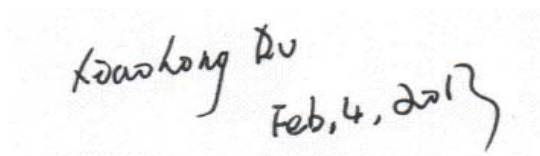 Xiaohong Du
Feb, 4, 2013